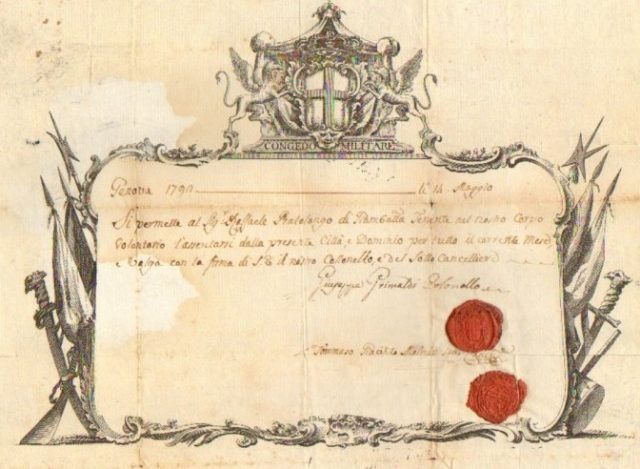 CONGEDO MILITARE
Genova 1790 li 14 Maggio
Si permette al Sig. Raffaele Pratolongo di Rambaldo Tenente nel nostro Corpo
Volontario l'assentarsi dalla presente Città, e Dominio per tutto il corrente Mese
e Valga con la firma di S. E. il nostro Collonello, e del Sotto Cancelliere
Giuseppe Grimaldi Colonello
Tommaso